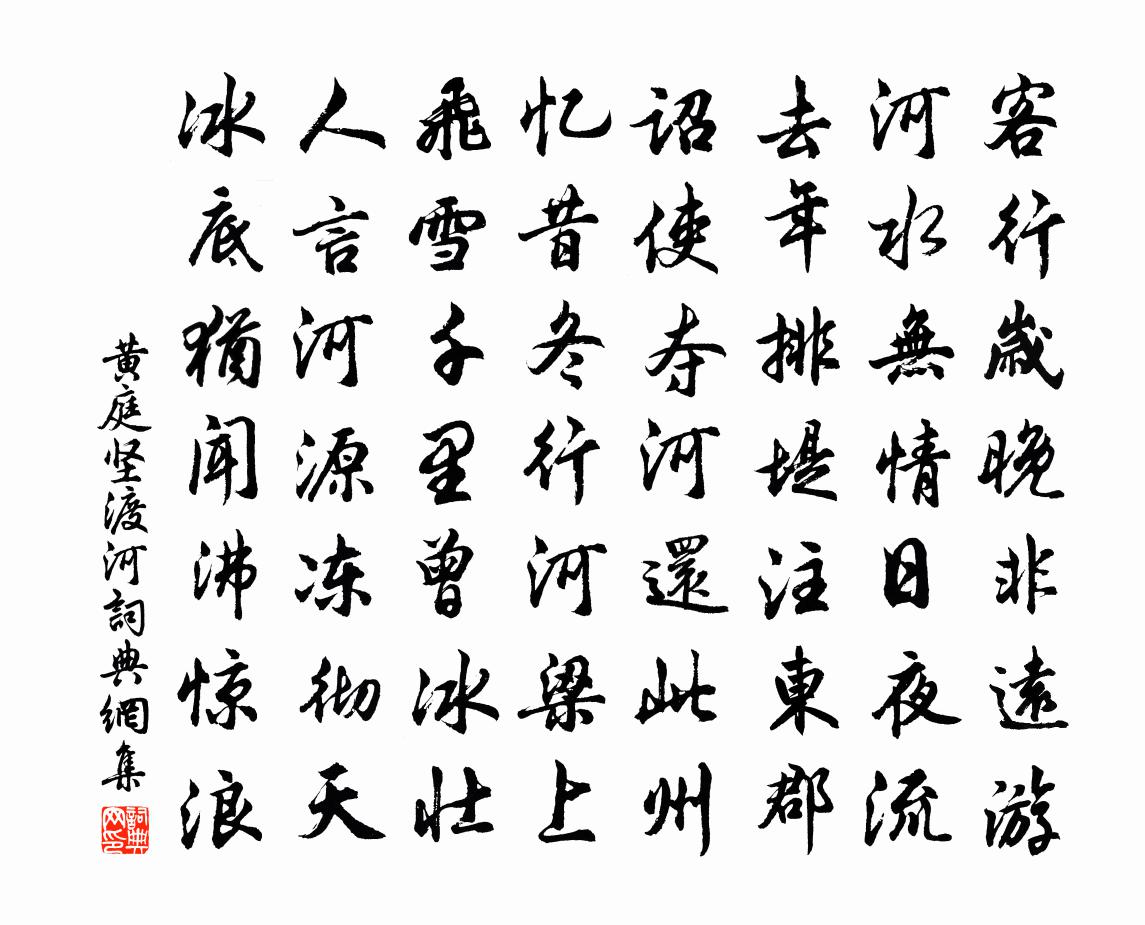 客行歲晚非遠游
河水無情日夜流
去年排堤注東郡
詔使夺河還此州
忆昔冬行河梁上
飛雪千里曾冰壮
人言河源冻彻天
冰底猶闻沸惊浪
黄庭坚渡河詞典網集
詞典网印